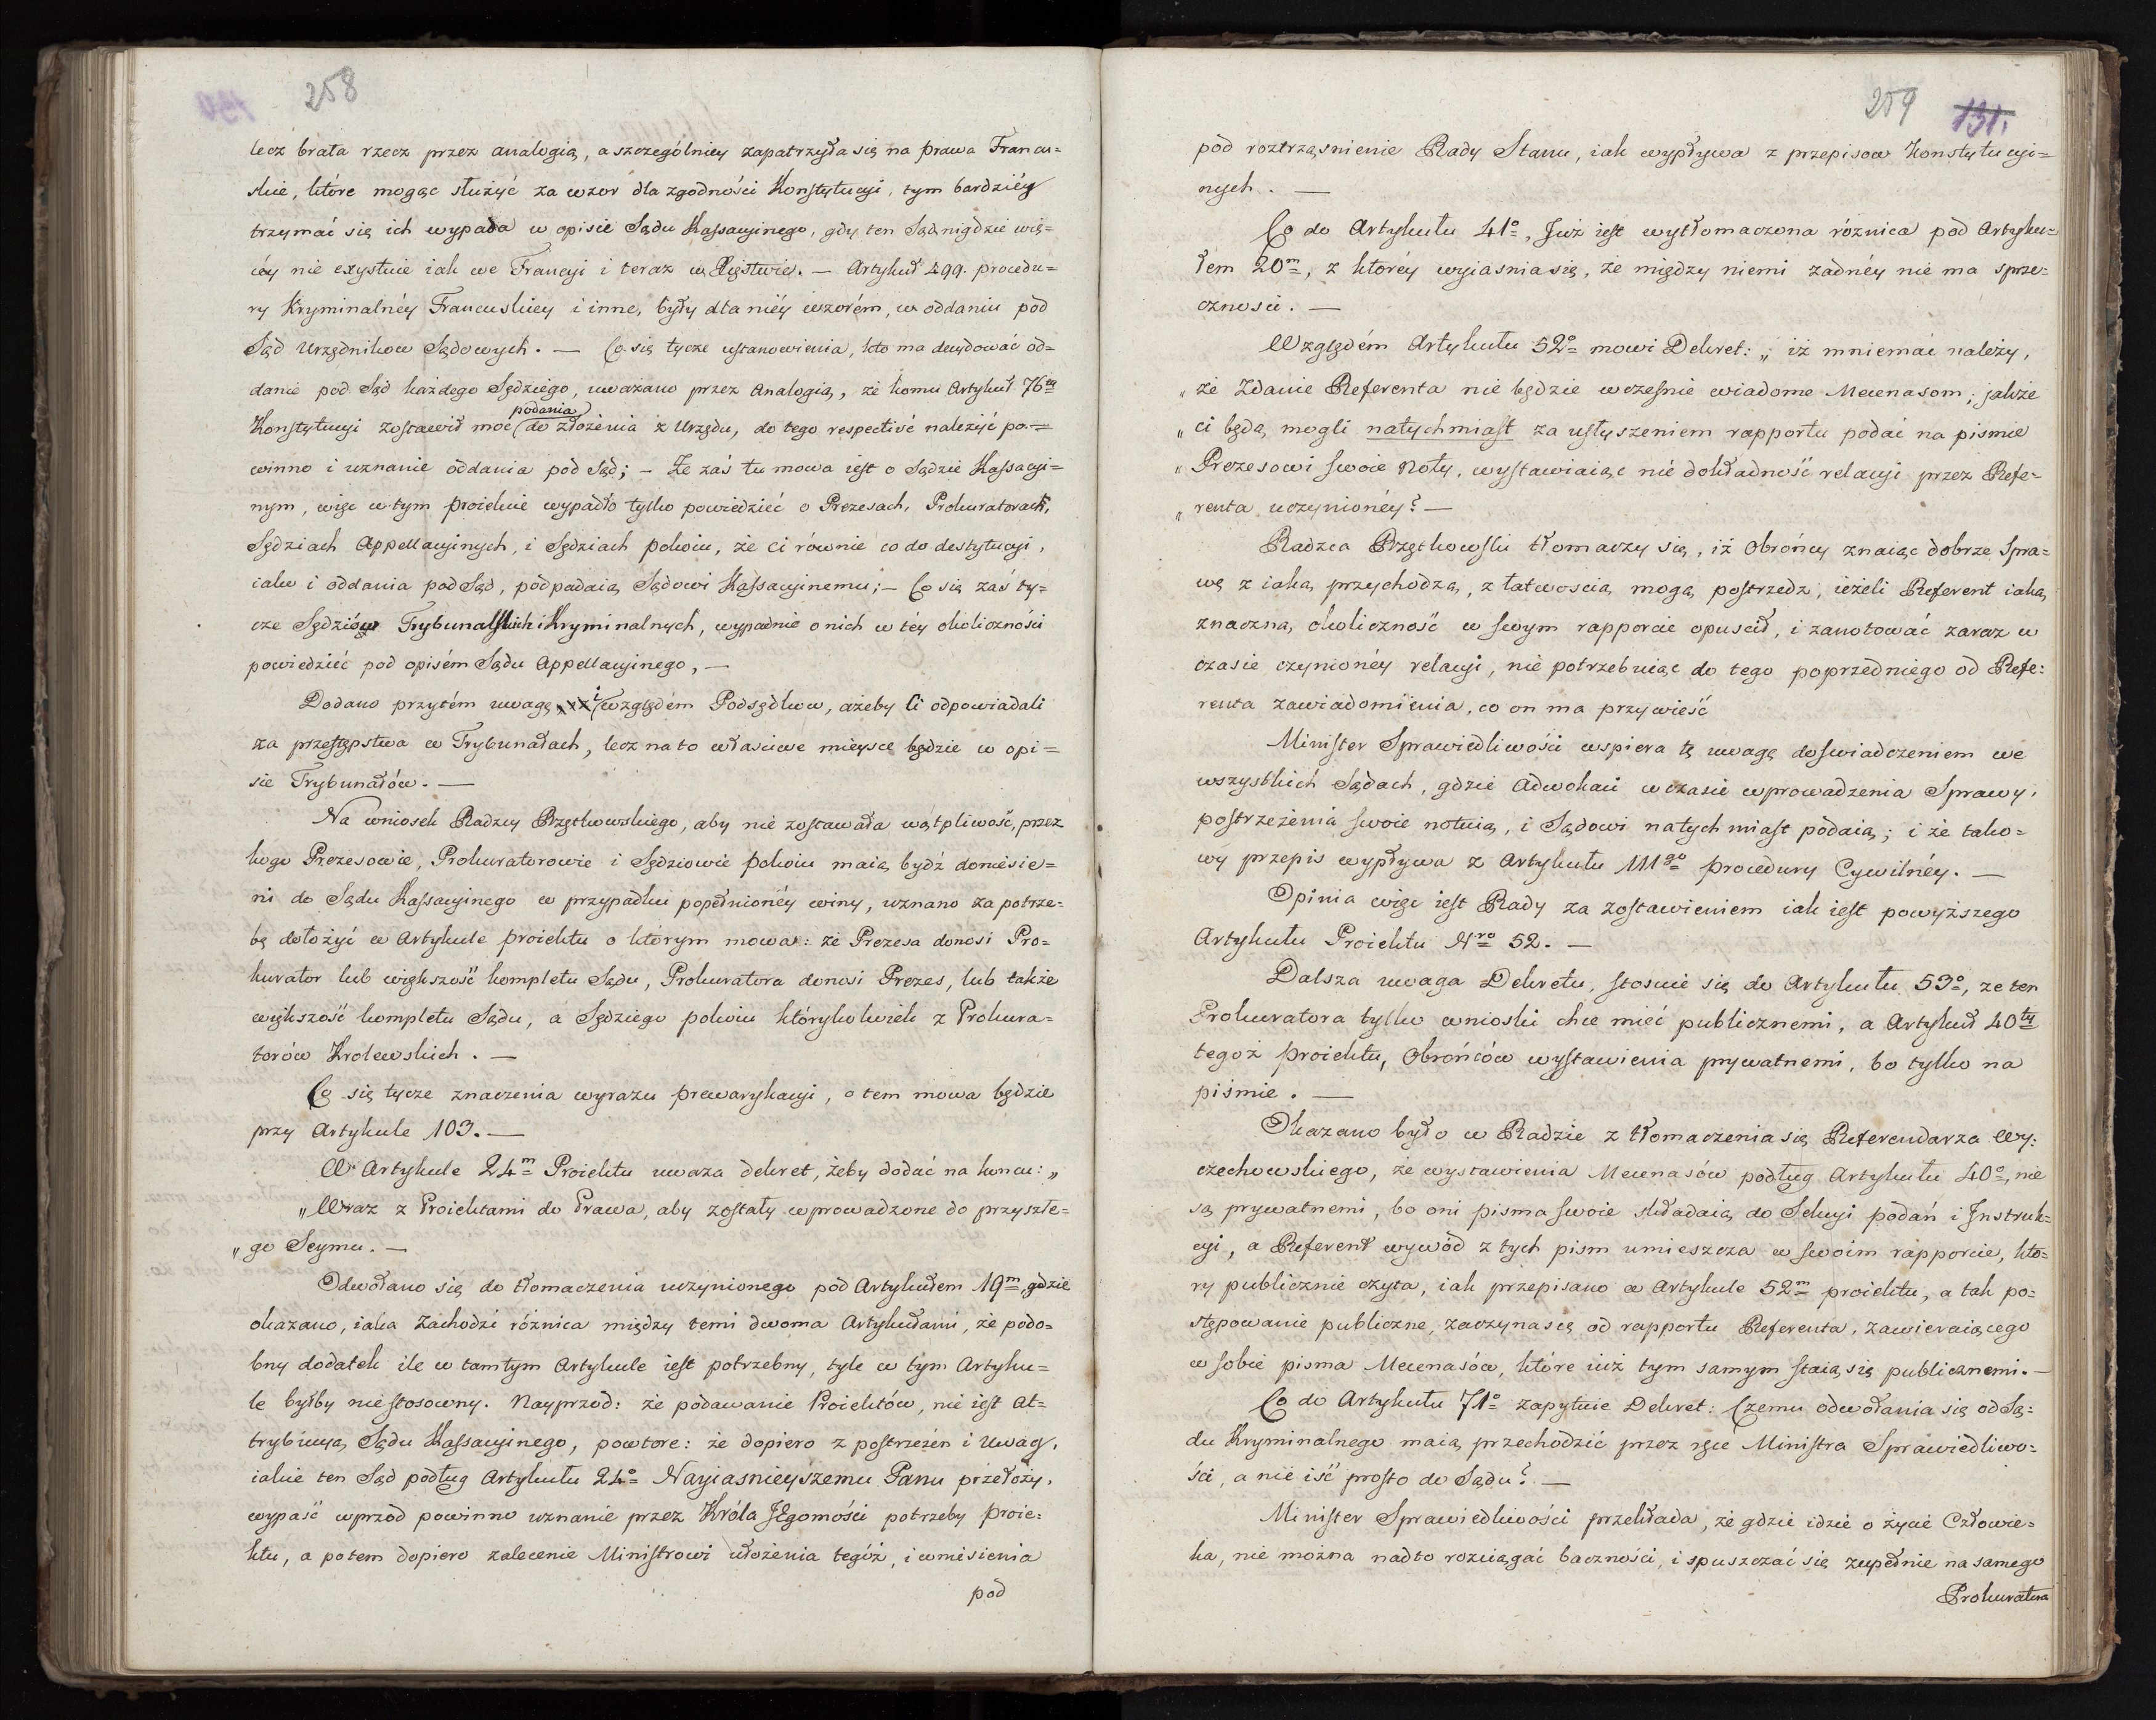 258
lecz brała rzecz przez analogią, a szczególniey zapatrzyła się na prawa Francu=
skie, które mogąc służyć za wzor dla zgodności Konstytucyi, tym bardziéy
trzymać się ich wypada w opisie Sądu Kassacyinego, gdy ten Sąd nigdzie wię=
céy nie exystuie iak we Francyi i teraz w Xięstwie. — Artykuł 499. procedu=
ry Kryminalnéy Francuskiey i inne, były dla niéy wzorém, w oddaniu pod
Sąd Urzędnikow Sądowych. — Co się tycze ustanowienia, kto ma decydować od=
danie pod Sąd każdego Sędziego, uważano przez Analogią, że komu Artykuł 76ty
podania
Konstytucyi zostawił moc do złożenia z Urzędu, do tego respectivé należyć po=
winno i uznanie oddania pod Sąd; — Że zaś tu mowa iest o Sądzie Kassacyi=
nym, więc w tym proiekcie wypadło tylko powiedzieć o Prezesach, Prokuratorach,
Sędziach Appellacyinych, i Sędziach pokoiu, że ci równie co do destytucyi,
iako i oddania pod Sąd, podpadaią Sądowi Kassacyinemu; — Co się zaś ty=
cze Sędziów Trybunalskich i Kryminalnych, wypadnie o nich w téy okoliczności
powiedzieć pod opisém Sądu Appellacyinego, —
Dodano przytém uwagę i względém Podsędkow, ażeby Ci odpowiadali
za przestępstwa w Trybunałach, lecz na to właściwe mieysce będzie w opi=
sie Trybunałów. —
Na wniosek Radzcy Brzętkowskiego, aby nie zostawała wątpliwość, przez
kogo Prezesowie, Prokuratorowie i Sędziowie pokoiu maią bydź doniesie=
ni do Sądu Kassacyinego w przypadku popełnionéy winy, uznano za potrze=
bę dołożyć w Artykule proiektu o którym mowa: że Prezesa donosi Pro=
kurator lub większość kompletu Sądu, Prokuratora donosi Prezes, lub także
większość kompletu Sądu, a Sędziego pokoiu którykolwiek z Prokura=
torów Krolewskich. —
Co się tycze znaczenia wyrazu prewarykacyi, o tem mowa będzie
przy Artykule 103. —
W Artykule 24m Proiektu uważa dekret, żeby dodać na koncu: „
„Wraz z Proiektami do Prawa, aby zostały wprowadzone do przyszłe=
„go Seymu. —
Odwołano się do tłomaczenia uczynionego pod Artykułem 19m, gdzie
okazano, iaka Zachodzi różnica między temi dwoma Artykułami, że podo=
bny dodatek ile w tamtym Artykule iest potrzebny, tyle w tym Artyku=
le byłby nie stosowny. Nayprzod: że podawanie Proiektów, nie iest At=
trybucyą Sądu Kassacyinego, powtore: że dopiero z postrzeżen i Uwag,
iakie ten Sąd podług Artykułu 24o Nayiasnieyszemu Panu przełoży,
wypaść wprzod powinno uznanie przez Króla JEgomości potrzeby proie=
ktu, a potem dopiero zalecenie Ministrowi ułożenia tegóż, i wniesienia
pod
259 131.
pod roztrząsnienie Rady Stanu, iak wypływa z przepisow Konstytucyi=
nych. —
Co do Artykułu 41o, Już iest wytłomaczona różnica pod Artyku=
łem 20m, z któréy wyiaśnia się, że między niemi żadnéy nie ma sprze=
cznosci. —
Względém Artykułu 52o mowi Dekret: „iż mniemać należy,
„że Zdanie Referenta nie będzie wczesnie wiadome Mecenasom; jakże
„ci będą mogli natychmiast za usłyszeniem rapportu podać na pismie
„Prezesowi swoie Noty, wystawiaiąc nié dokładność relacyi przez Refe=
„renta uczynionéy? —
Radzca Brzętkowski tłomaczy się, iż Obrońcy znaiąc dobrze Spra=
wę z iaką przychodzą, z łatwoscią mogą postrzedz, ieżeli Referent iaką
znaczną okoliczność w swym rapporcie opuscił, i zanotować zaraz w
czasie czynionéy relacyi, nie potrzebuiąc do tego poprzedniego od Refe=
renta zawiadomienia, co on ma przywieść
Minister Sprawiedliwości wspiera tę uwagę doswiadczeniem we
wszystkich Sądach, gdzie Adwokaci w czasie wprowadzenia Sprawy,
postrzeżenia swoie notuią, i Sądowi natychmiast podaią; i że tako=
wy przepis wypływa z Artykułu 111go procedury Cywilnéy. —
Opinia więc iest Rady za zostawieniem iak iest powyższego
Artykułu Proiektu Nro 52. —
Dalsza uwaga Dekretu, stosuie się do Artykułu 53o, że ten
Prokuratora tylko wnioski chce mieć publicznemi, a Artykuł 40ty
tegoż proiektu, Obrońców wystawienia prywatnemi, bo tylko na
piśmie. —
Okazano było w Radzie z tłomaczenia się Referendarza Wy=
czechowskiego, że wystawienia Mecenasów podług Artykułu 40o, nie
są prywatnemi, bo oni pisma swoie składaią do Sekcyi podań i Instruk=
cyi, a Referent wywód z tych pism umieszcza w swoim rapporcie, któ=
ry publicznie czyta, iak przepisano w Artykule 52m proiektu, a tak po=
stępowanie publiczne, zaczyna się od rapportu Referenta, zawieraiącego
w sobie pisma Mecenasów, które iuż tym samym staią się publicznemi. —
Co do Artykułu 71o zapytuie Dekret: Czemu odwołania się od Są=
du Kryminalnego maią przechodzić przez ręce Ministra Sprawiedliwo=
ści, a nie iść prosto do Sądu? —
Minister Sprawiedliwości przekłada, że gdzie idzie o życie Człowie=
ka, nie można nadto rozciągać baczności, i spuszczać się zupełnie na samego
Prokuratora